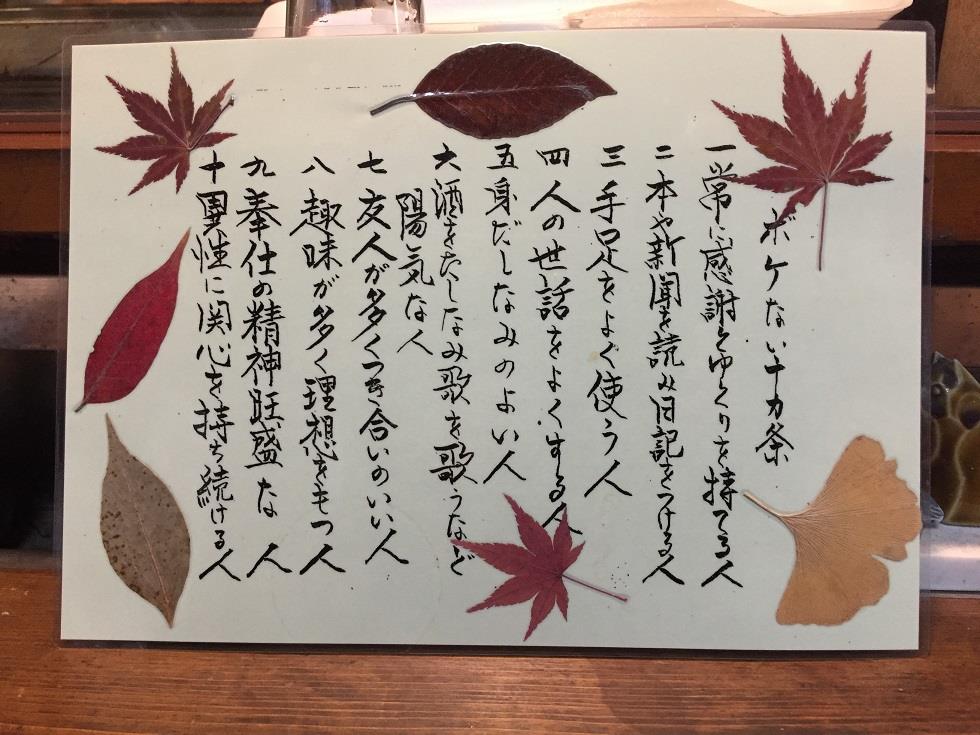 ボケない十カ条
一 常に感謝とゆとりを持てる人
二 本や新聞を読み日記をつける人
三 手足をよく使う人
四 人の世話をよくする人
五 身だしなみのよい人
六 酒をたしなみ歌を歌うなど
陽気な人
七 友人が多くつき合いのいい人
八 趣味が多く理想をもつ人
九 奉仕の精神旺盛な人
十 異性に関心を持ち続ける人